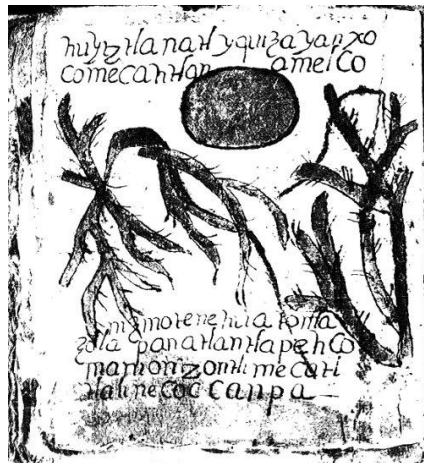 huytztlanatl yquizayanxo
comecatitlan ameico
motenehua toma
zola panatlantlapehco
tzontli mecati
tlali necoc canpa